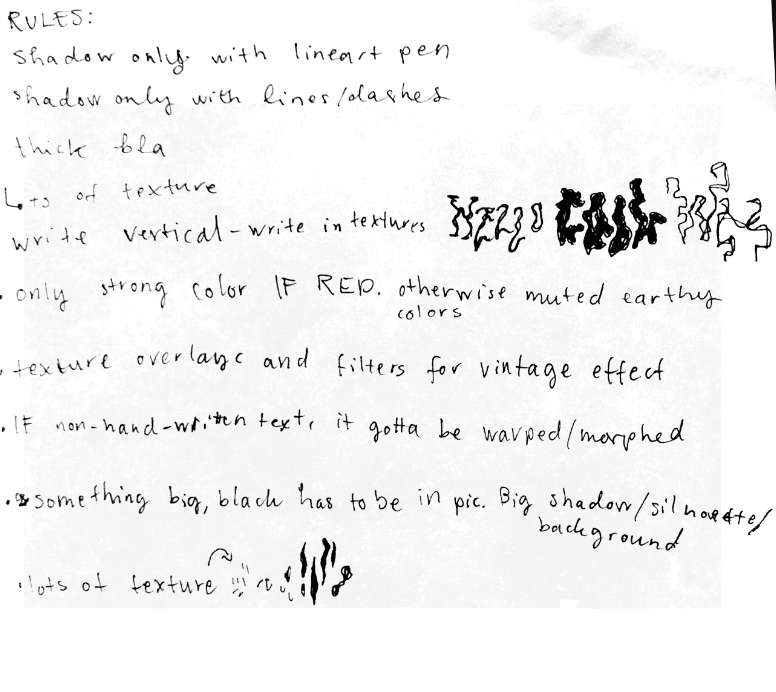 RULES:
shadow only with lineart pen
shadow only with lines/dashes
thick bla
Lots of texture
write vertical-write in textures
• only strong color IF RED. otherwise muted earthy
colors
• texture overlays and filters for vintage effect
• IF non-hand-written text, it gotta be warped/morphed
• something big, black has to be in pic. Big shadow/silhouette/
background
• lots of texture